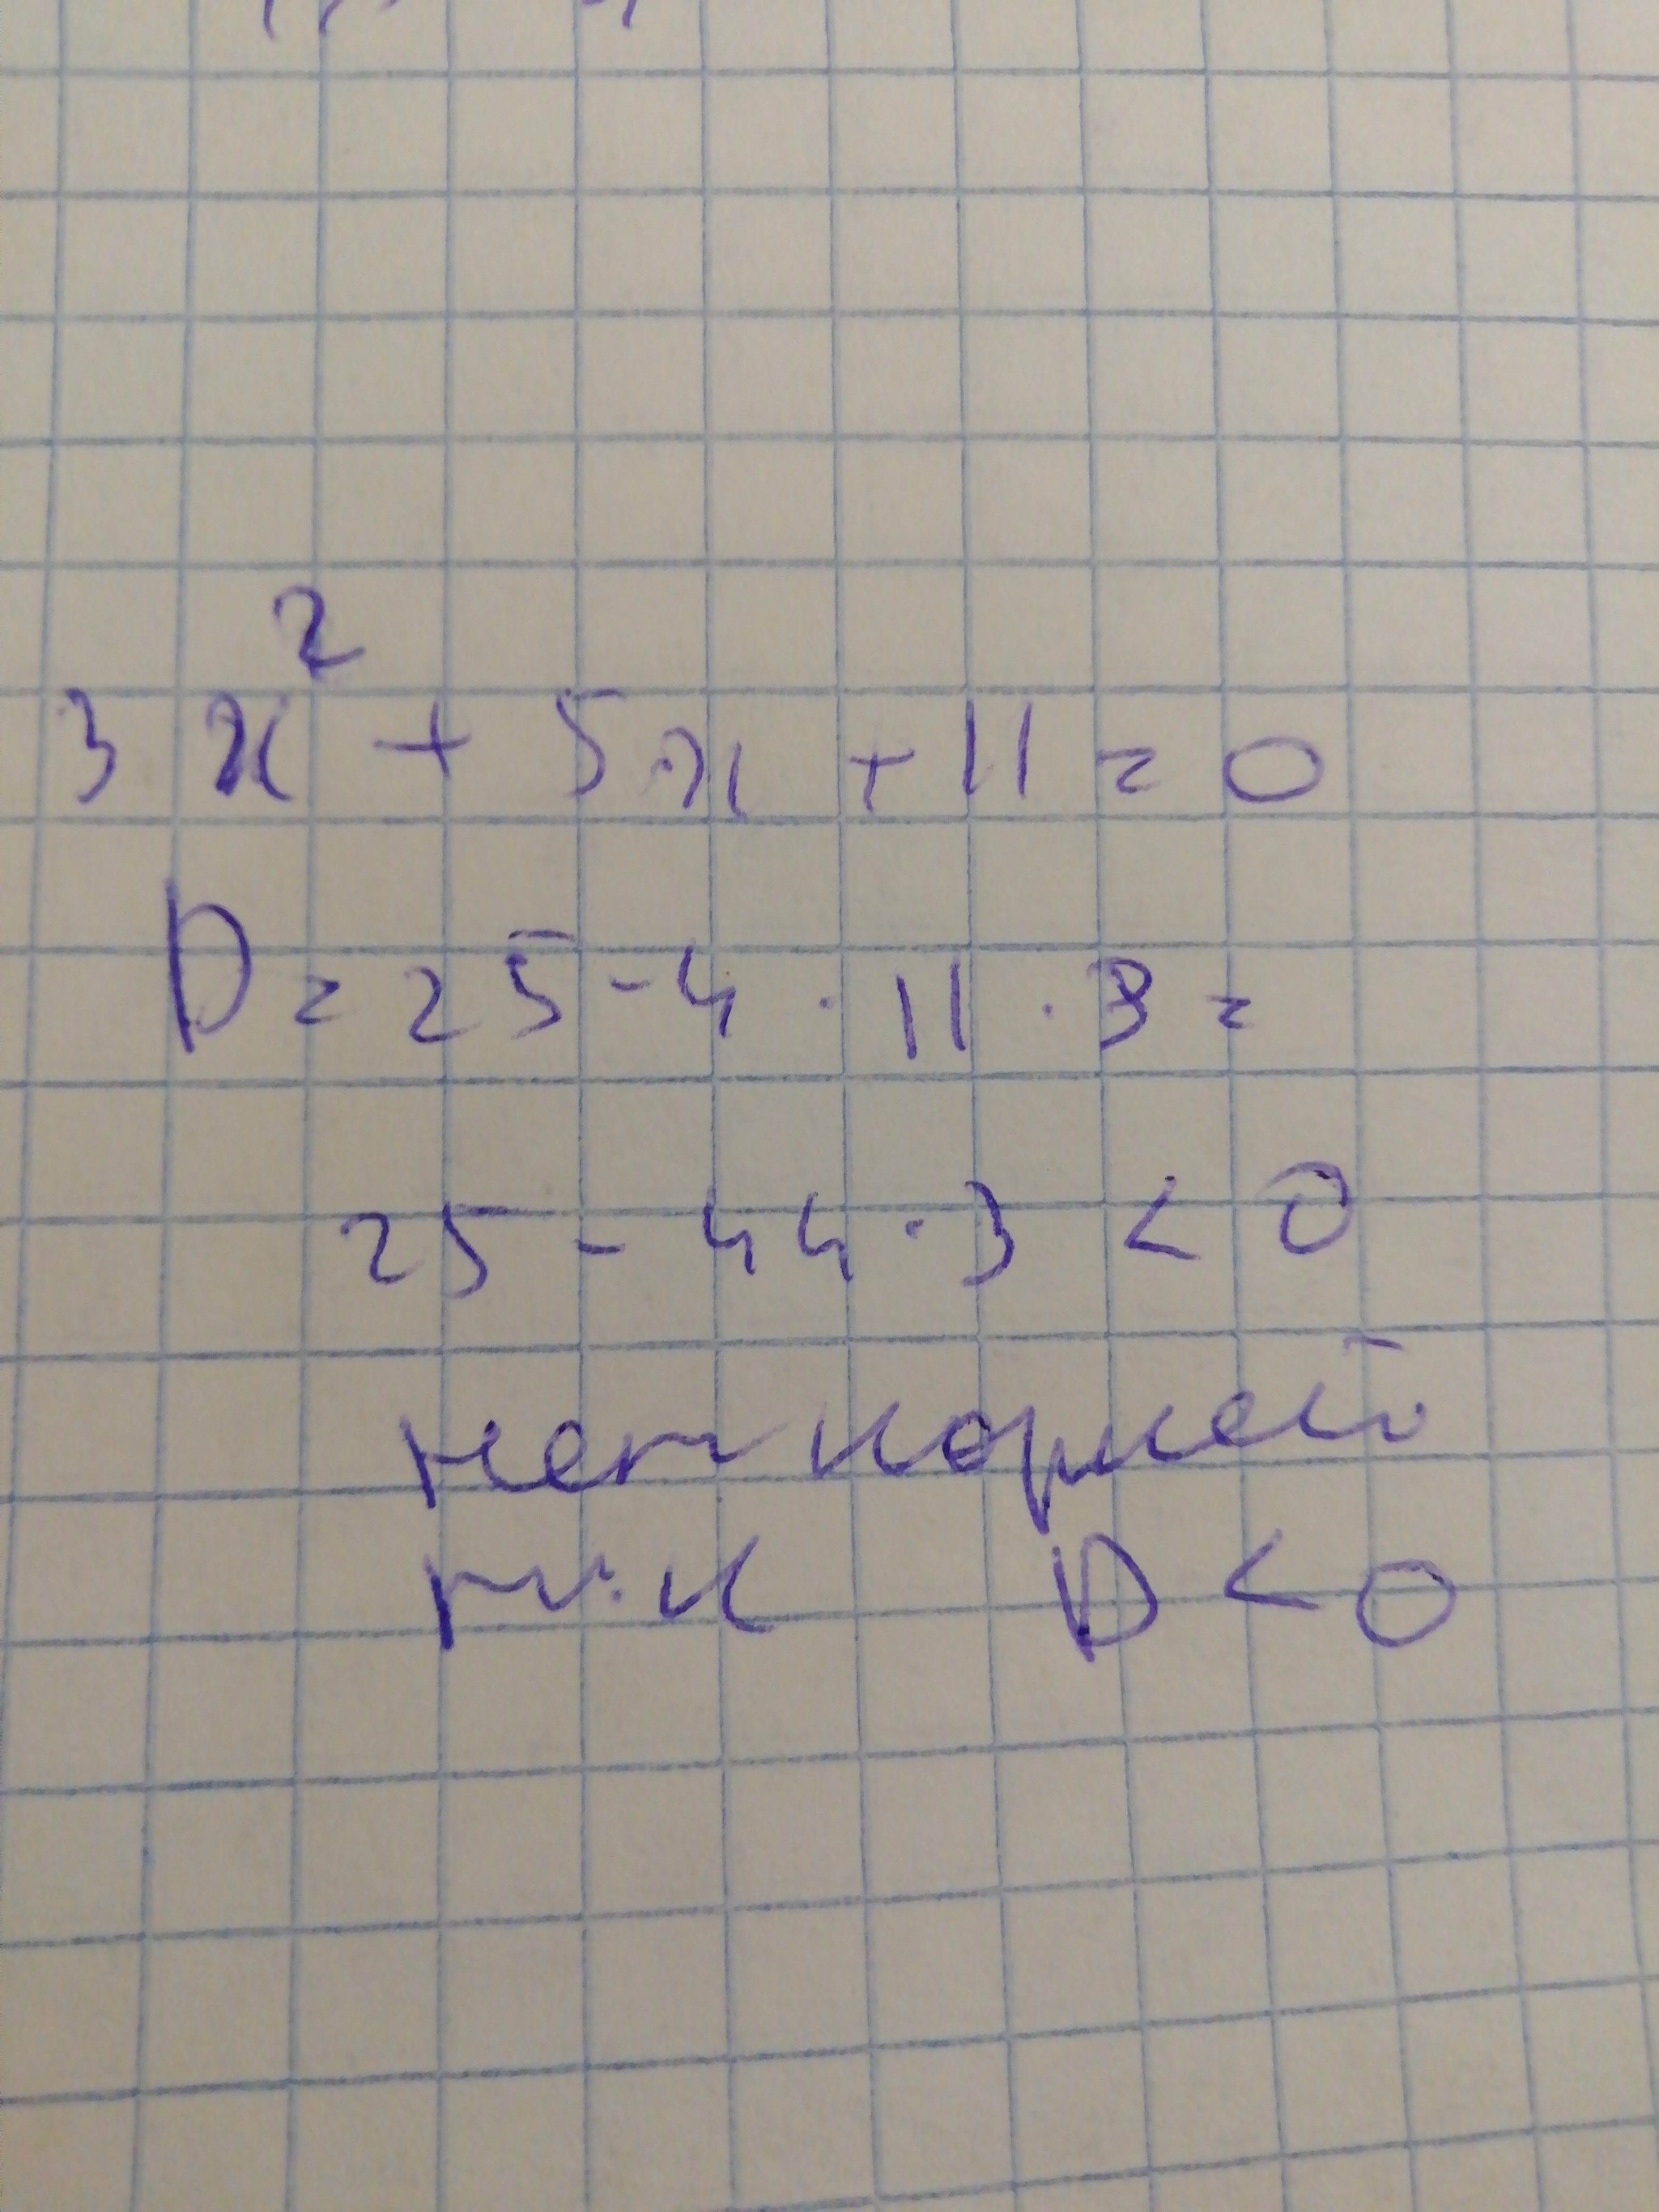 3x² + 5x + 11 = 0
D = 25 - 4 · 11 · 3 =
25 - 44 · 3 < 0
нет корней
т.к D < 0